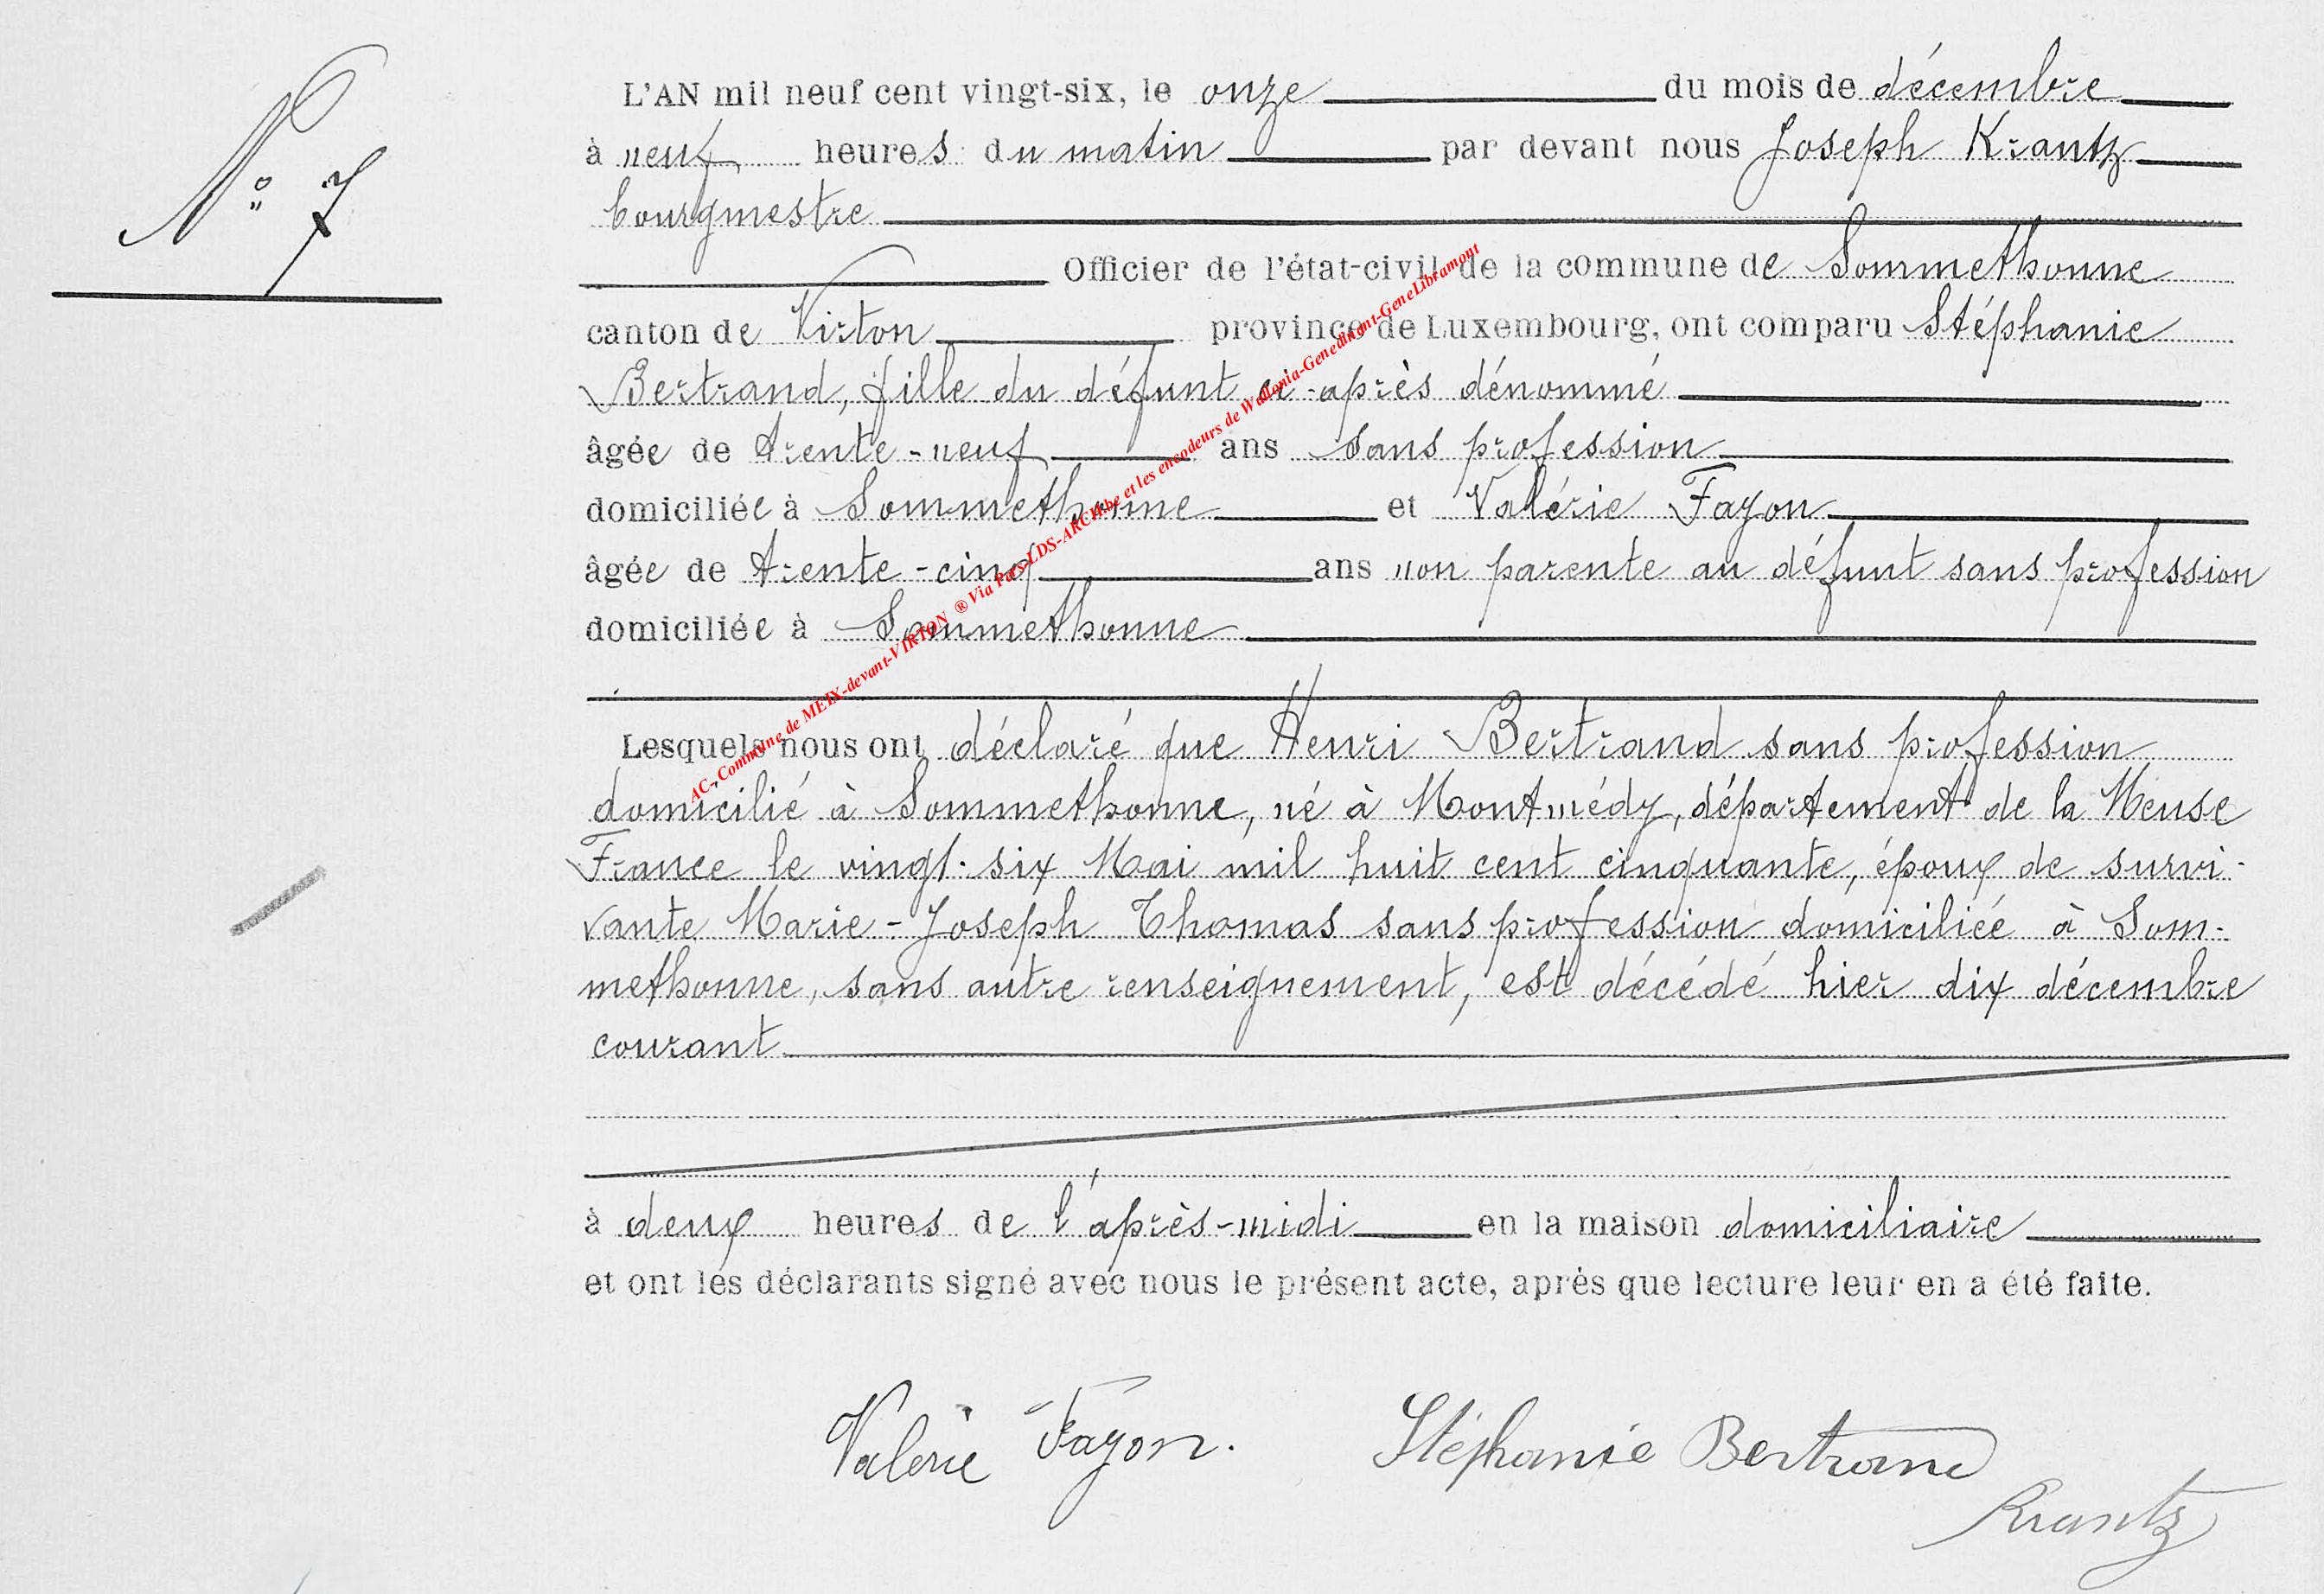 N° 7
L'AN mil neuf cent vingt-six, le onze du mois de décembre
à neuf heures du matin par devant nous Joseph Krantz
bourgmestre
Officier de l'état-civil de la commune de Sommethonne
canton de Virton province de Luxembourg, ont comparu Stéphanie
Bertrand, fille du défunt ci-après dénommé
âgée de trente-neuf ans sans profession
domiciliée à Sommethonne et Valérie Fayon
âgée de trente-cinq ans non parente au défunt sans profession
domiciliée à Sommethonne
Lesquels nous ont déclaré que Henri Bertrand sans profession
domicilié à Sommethonne, né à Montmédy, département de la Meuse
France le vingt-six Mai mil huit cent cinquante, époux de survi-
vante Marie-Joseph Thomas sans profession domiciliée à Som-
methonne, sans autre renseignement, est décédé hier dix décembre
courant
à deux heures de l'après-midi en la maison domiciliaire
et ont les déclarants signé avec nous le présent acte, après que lecture leur en a été faite.
Valérie Fayon. Stéphanie Bertrand
Krantz
AC-Commune de MEIX-devant-VIRTON ® Via Pars-LDS-ARCH.be et les encodeurs de Wallonia-Genedinant-GeneLibramont